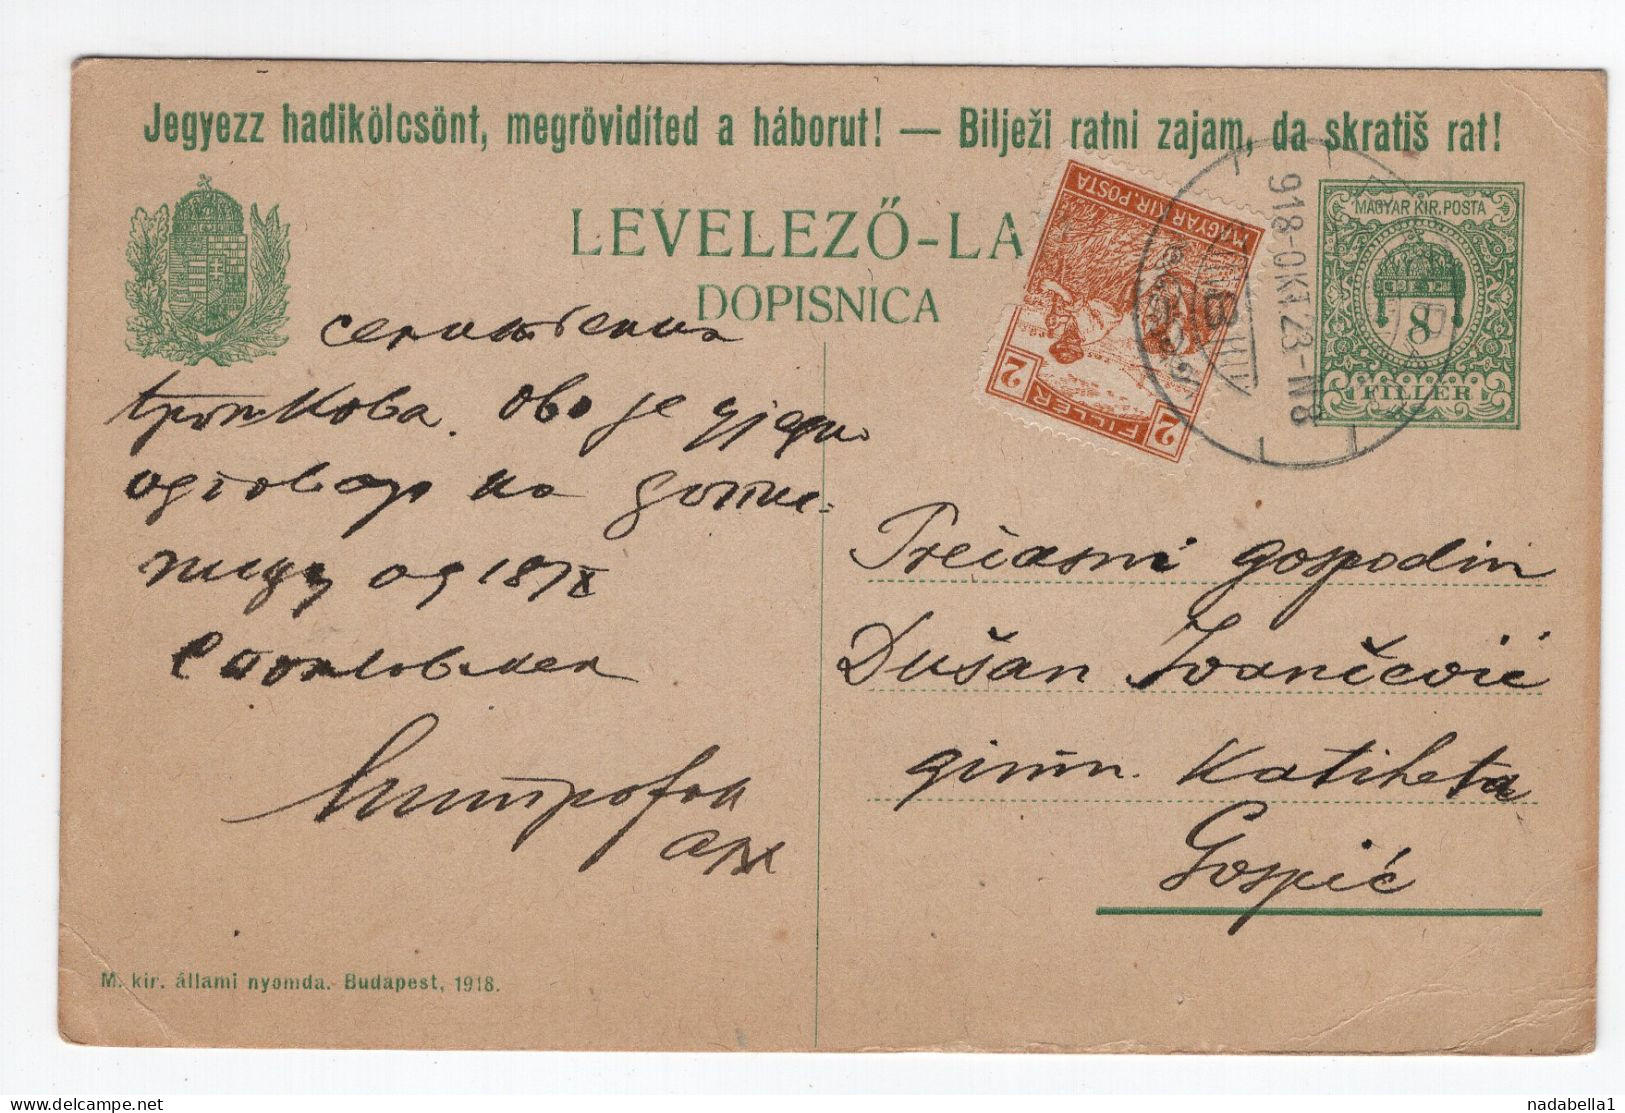 Jegyezz hadikölcsönt, megrövidíted a háborut! — Bilježi ratni zajam, da skratiš rat!
LEVELEZŐ-LA
DOPISNICA
MAGYAR KIR. POSTA
2 FILLÉR 2
918-OKT.23-N8
MAGYAR KIR. POSTA
8
FILLÉR
трошкова. Ово је уједно
одговор на допис-
ницу од 18/X
С поштовањем
Митрофан
Prečasni gospodin
Dušan Ivančević
gimn. katiheta
Gospić
M. kir. állami nyomda. Budapest, 1918.
nadabella1